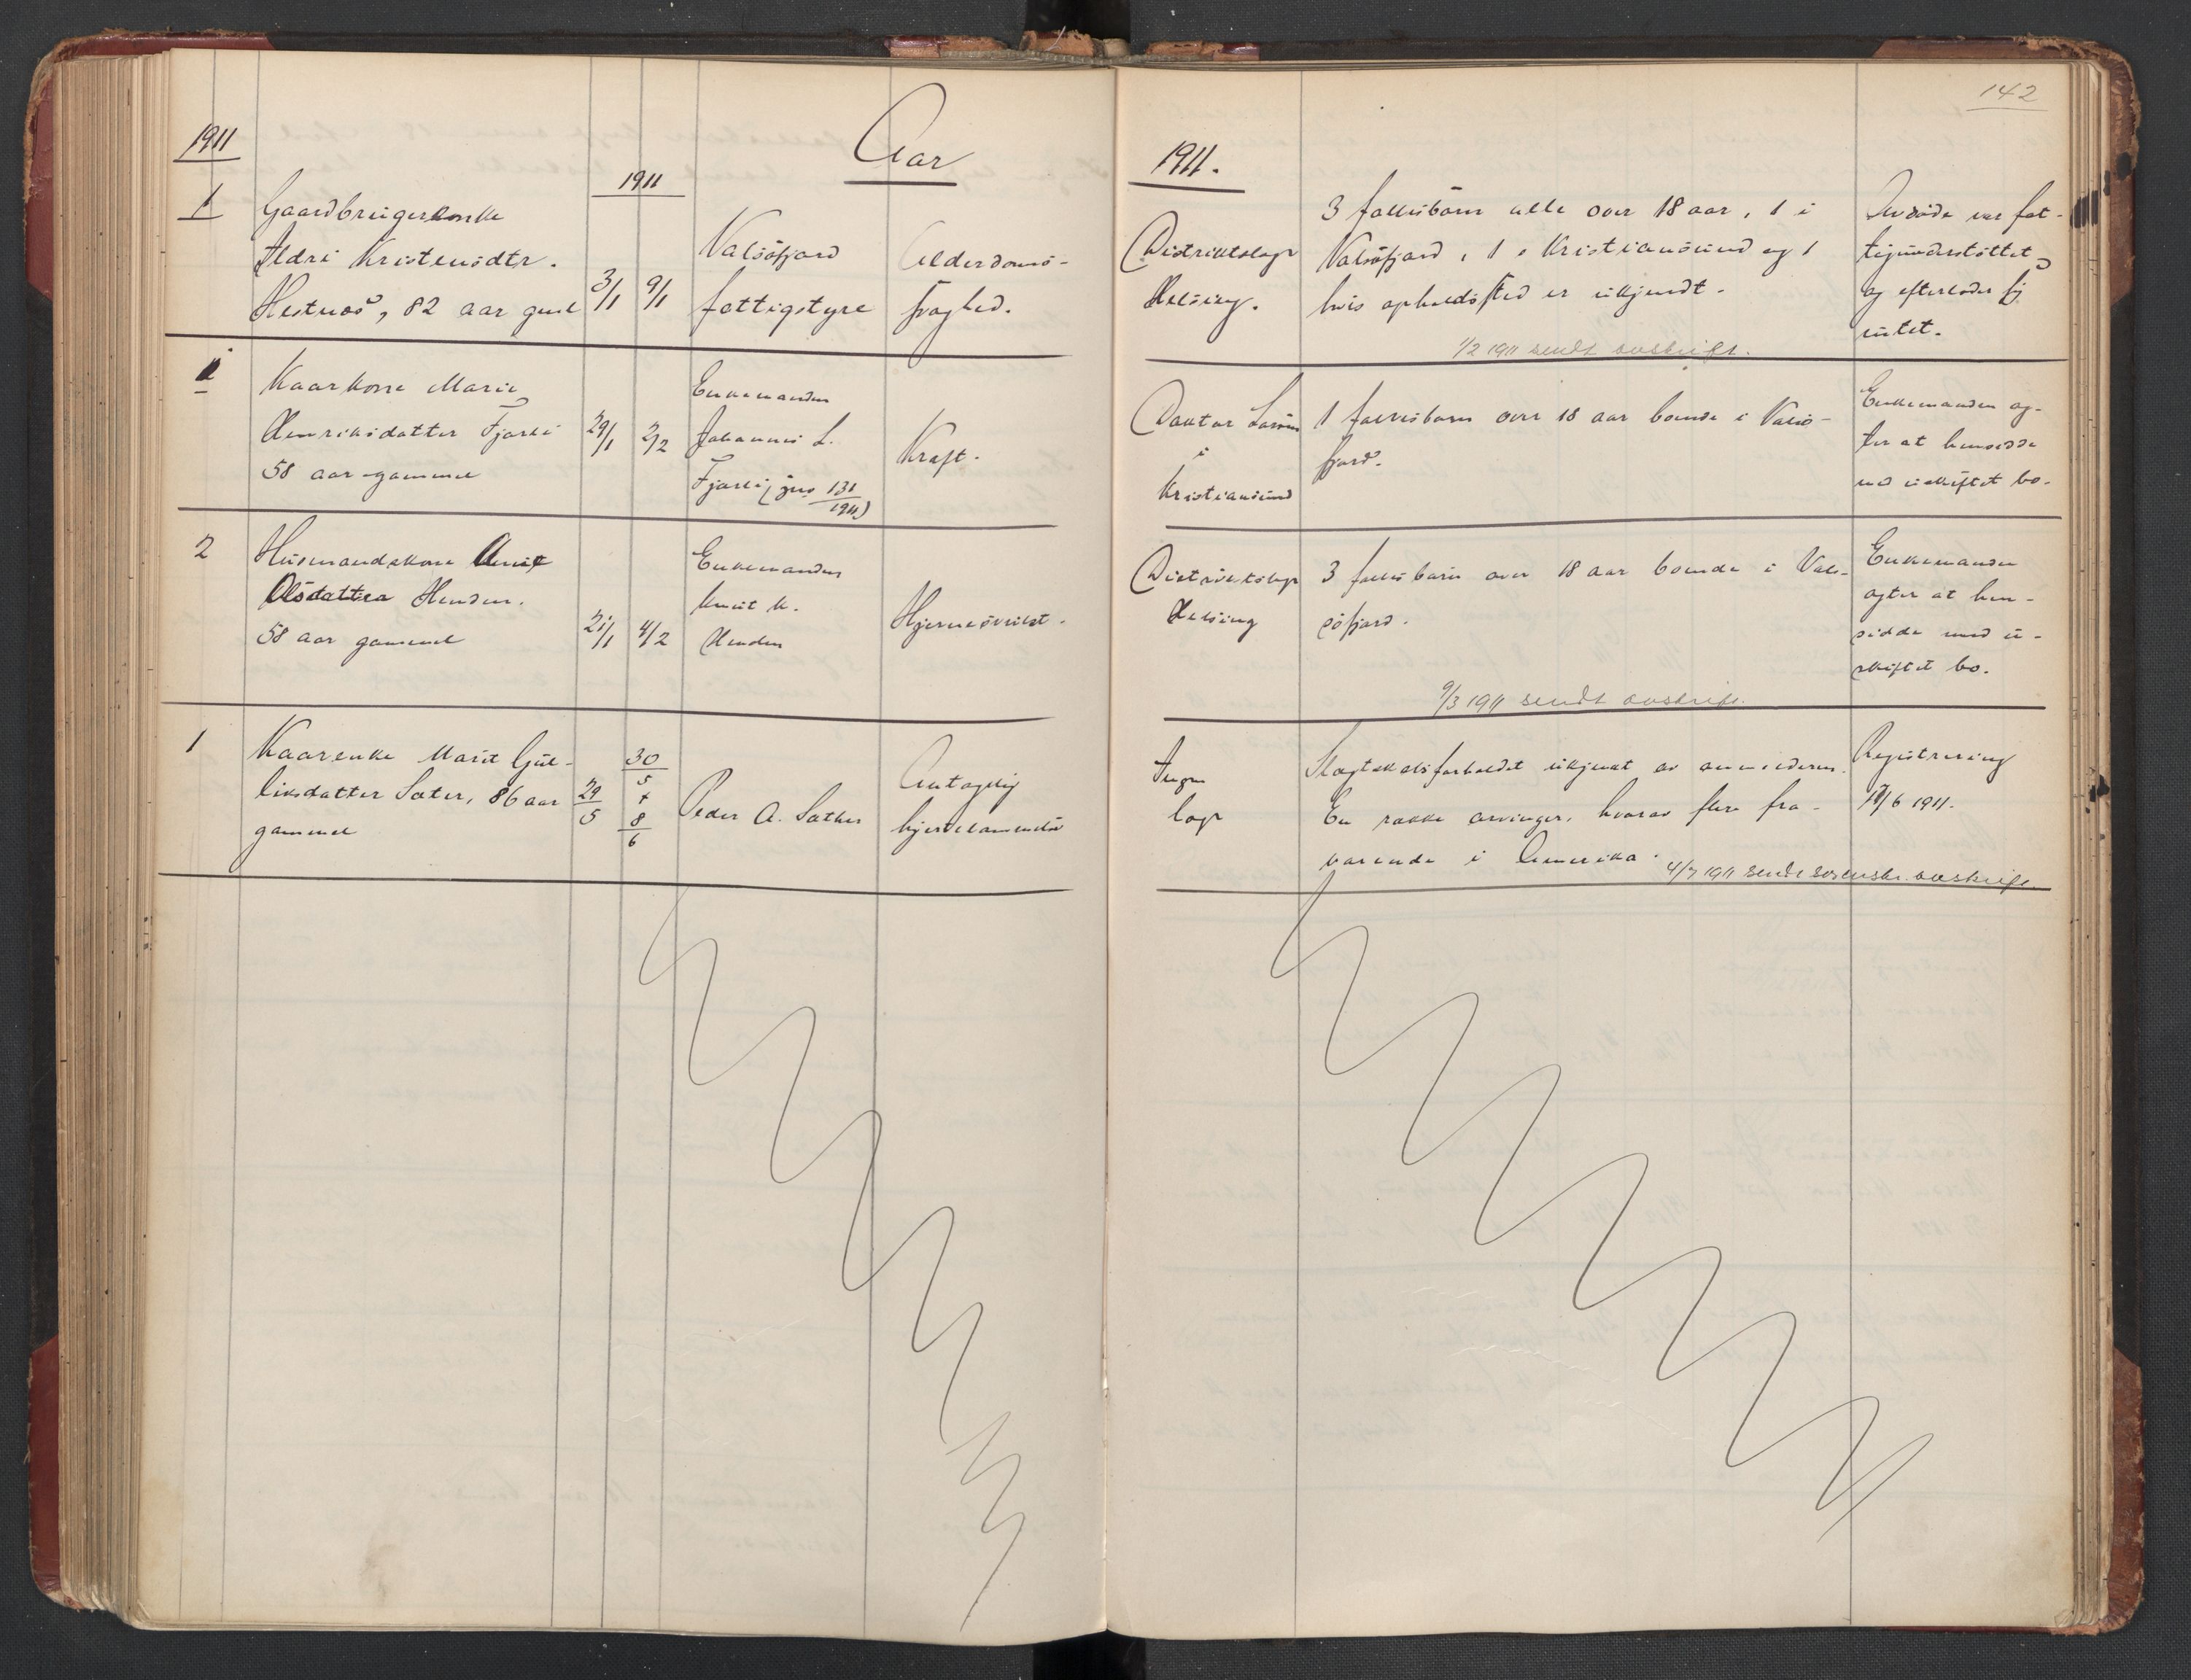 142
Aar
1911.
1911
1911
1
Gaardbrugerenke
Ildri Kristensdtr.
Hestnes, 82 aar gml
3/1
9/1
Valsøfjord
fattigstyre
Alderdoms-
svaghed.
Distriktslæge
Helsing.
3 fællesbørn alle over 18 aar, 1 i
Valsøfjord, 1 i Kristiansund og 1
hvis opholdssted er ukjendt.
1/2 1911 sendt avskrift.
Avdøde var fat-
tigunderstøttet
og efterlader sig
intet.
1
Kaarkone Marie
Henriksdatter Fjærli
58 aar gammel
29/1
2/2
Enkemanden
Johannes L.
Fjærli (gns 131/1911)
Kræft.
Doktor Larsen
i
Kristiansund
1 fællesbarn over 18 aar boende i Valsø-
fjord.
Enkemanden ag-
ter at hensidde
med uskiftet bo.
2
Husmandskone Marit
Olsdatter Henden.
58 aar gammel
21/1
4/2
Enkemanden
Knut K.
Henden
Hjernesvulst.
Distriktslæge
Helsing
3 fællesbarn over 18 aar boende i Val-
søfjord.
9/3 1911 sendt avskrift.
Enkemanden
agter at hen-
sidde med u-
skiftet bo.
1
Kaarenke Marit Gul-
liksdatter Sæter, 86 aar
gammel
29/5
30/5
+
8/6
Peder A. Sæther
Antagelig
hjertelammelse
Ingen
læge
Slægtskabsforholdet ukjent av anmelderen.
En række arvinger, hvorav flere fra-
værende i Amerika.
4/7 1911 sendt sorenskr. avskrift.
Registrering
17/6 1911.